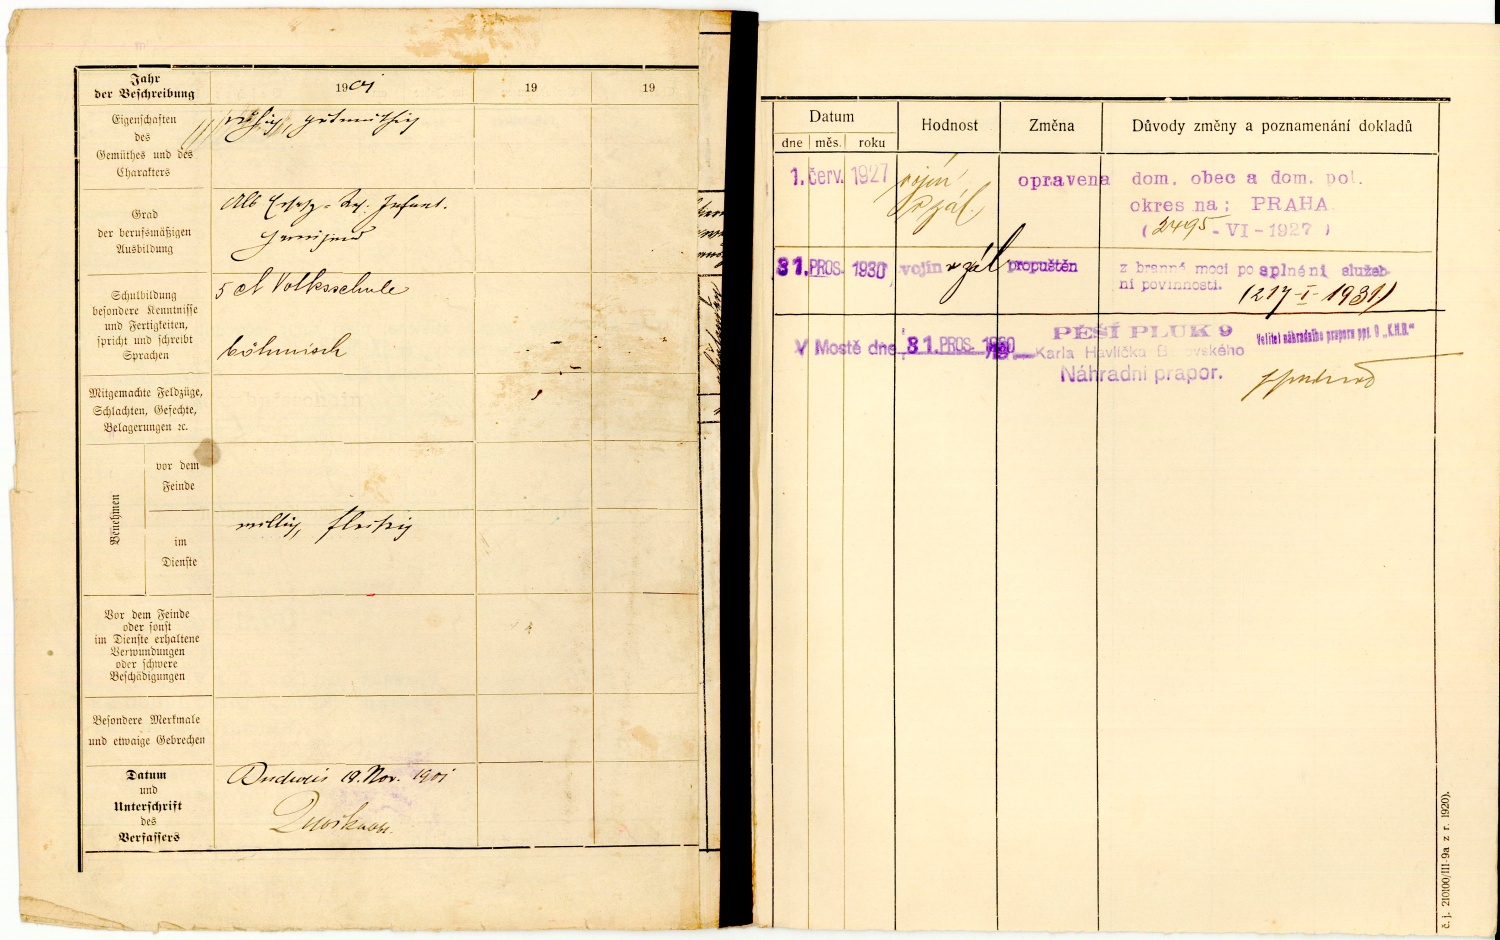 Jahr
der Beschreibung
1901
19
19
Eigenschaften
des
Gemüthes und des
Charakters
ruhig, gutmüthig
Grad
der berufsmäßigen
Ausbildung
Als Ersatz-Res. Infant.
genügend
Schulbildung
besondere Kenntnisse
und Fertigkeiten,
spricht und schreibt
Sprachen
5 Cl Volksschule
böhmisch
Mitgemachte Feldzüge,
Schlachten, Gefechte,
Belagerungen ꝛc.
Benehmen
vor dem
Feinde
im
Dienste
willig, fleißig
Vor dem Feinde
oder sonst
im Dienste erhaltene
Verwundungen
oder schwere
Beschädigungen
Besondere Merkmale
und etwaige Gebrechen
Datum
und
Unterschrift
des
Verfassers
Budweis 18. Nov. 1901
Datum
dne měs. roku
Hodnost
Změna
Důvody změny a poznamenání dokladů
1. červ. 1927 vojín v zál. opravena dom. obec a dom. pol.
okres na: PRAHA.
(2495-VI-1927)
31. PROS. 1930 vojín v zál propuštěn z branné moci po splnění služeb-
ní povinnosti. (217-I-1931)
V Mostě dne 31. PROS. 1930
PĚŠÍ PLUK 9
Karla Havlíčka Borovského
Náhradní prapor.
Velitel náhradního praporu pp. 9 „K.H.B."
č. j. 210100/III-9a z r. 1920).